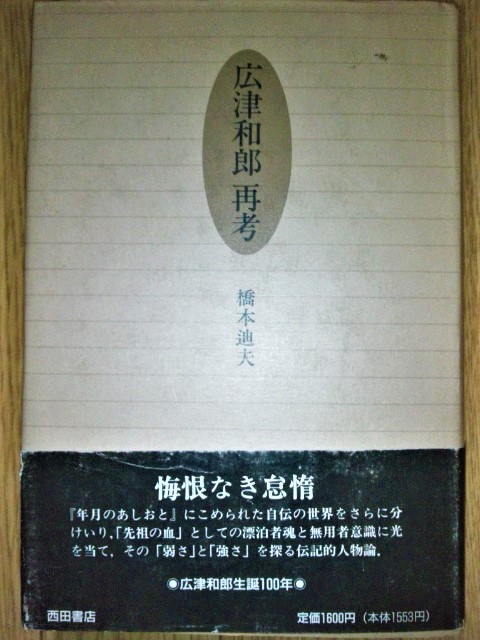 広津和郎 再考
橋本迪夫
悔恨なき怠惰
『年月のあしおと』にこめられた自伝の世界をさらに分
けいり,「先祖の血」としての漂泊者魂と無用者意識に光
を当て，その「弱さ」と「強さ」を探る伝記的人物論．
◉広津和郎生誕100年◉
西田書店
定価1600円（本体1553円）